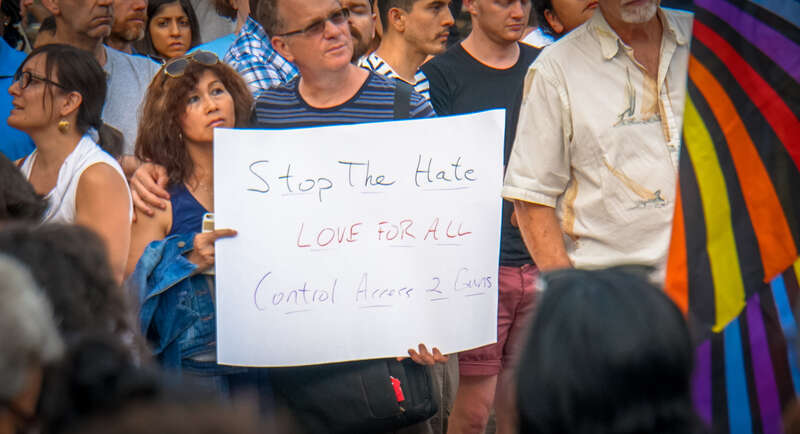 Stop The Hate
LOVE FOR ALL
Control Access 2 Guns